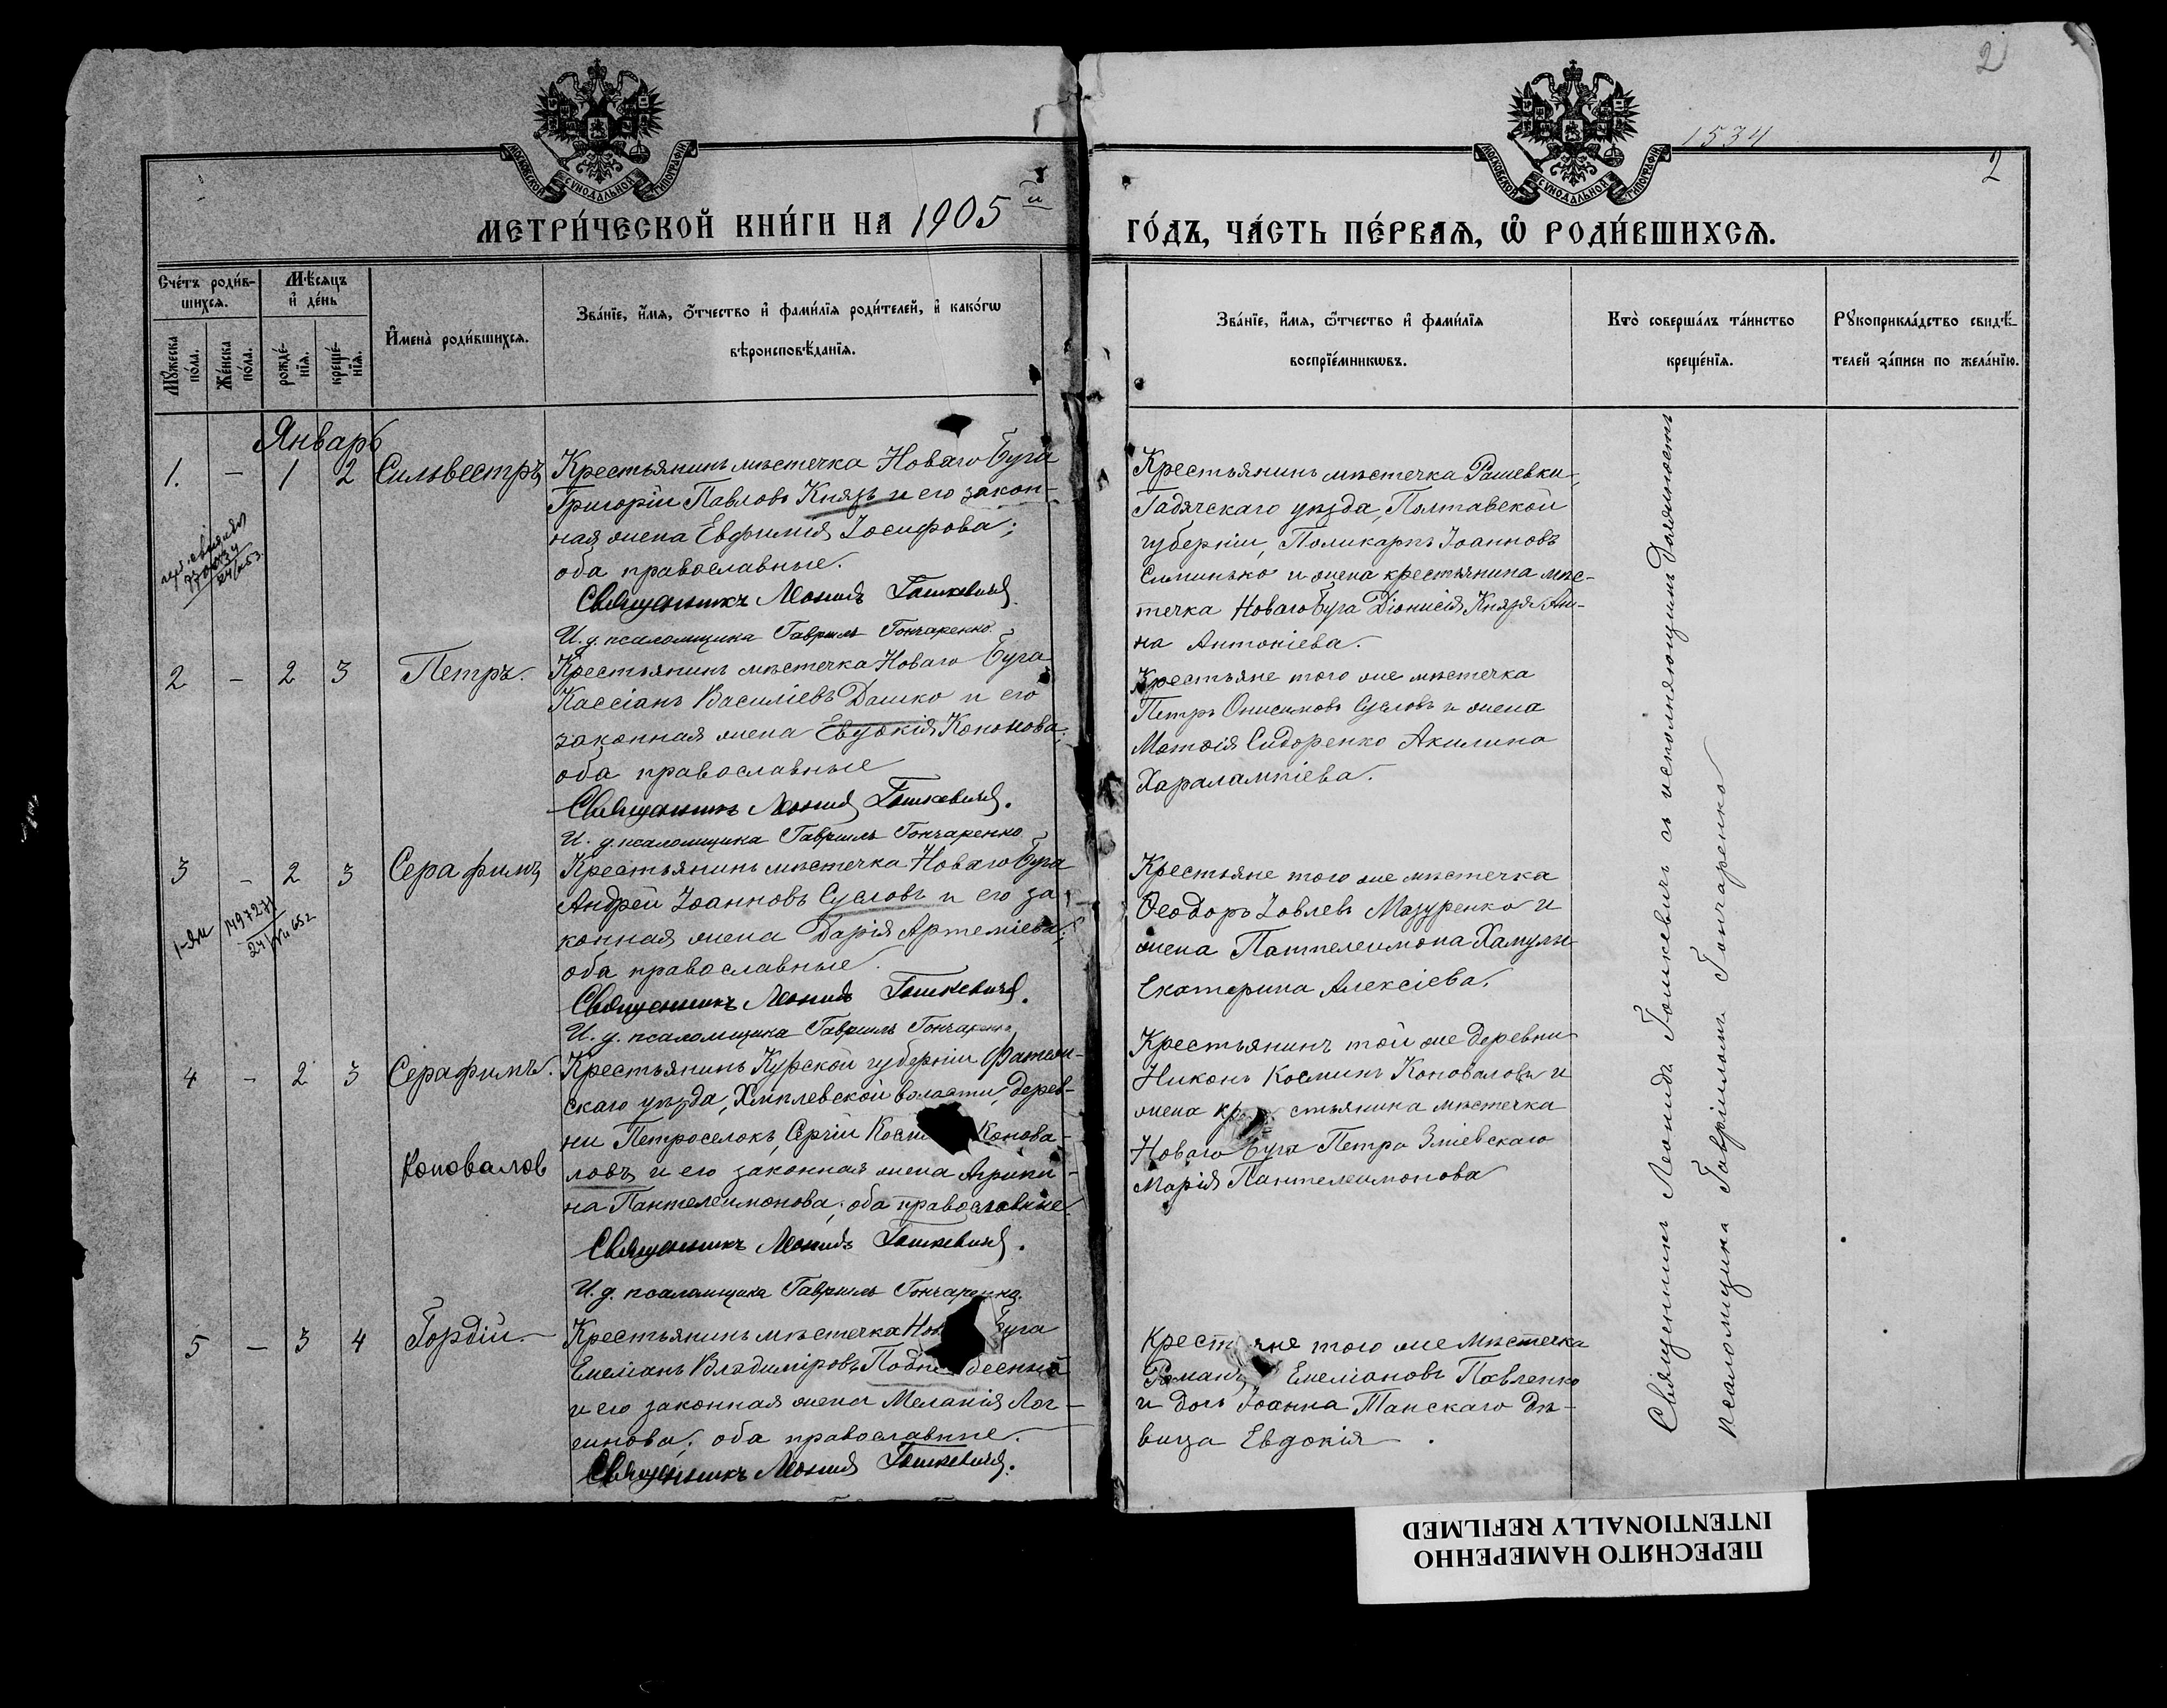 2
1534
2
МОСКОВСКОЙ СѴНОДАЛЬНОЙ ТИПОГРАФІИ
МОСКОВСКОЙ СѴНОДАЛЬНОЙ ТИПОГРАФІИ
МЕТРИ́ЧЕСКОЙ КНИ́ГИ НА 1905 й
ГО́ДЪ, ЧА́СТЬ ПЕ́РВАѦ, Ѽ РОДИ́ВШИХСѦ.
Сче́тъ роди́в-
шихсѧ.
Мѣ́сѧцъ
и҆ де́нь
Мꙋ́жеска
по́ла.
Же́нска
по́ла.
рожде́-
нїѧ.
креще́-
нїѧ.
И҆мена̀ роди́вшихсѧ.
Зва́нїе, и҆́мѧ, ѻ҆́тчество и҆ фами́лїѧ роди́телей, и҆ како́гѡ
вѣроисповѣ́данїѧ.
Зва́нїе, и҆́мѧ, ѻ҆́тчество и҆ фами́лїѧ
воспрїе́мникѡвъ.
Кто̀ соверша́лъ та́инство
креще́нїѧ.
Рꙋкоприкла́дство свидѣ́-
телей за́писи по жела́нїю.
Январь
1. - 1 2 Сильвестръ
Крестьянинъ мѣстечка Новаго Буга
Григорій Павловъ Князь и его закон-
ная жена Евфимія Іосифова;
оба православные.
Священникъ Леонидъ Гошкевичъ.
И. д. псаломщика Гавріилъ Гончаренко.
Крестьянинъ мѣстечка Рашевки,
Гадячскаго уѣзда, Полтавской
губерніи, Поликарпъ Іоанновъ
Симинько и жена крестьянина мѣс-
течка Новаго Буга Діонисія Князя Ан-
на Антоніева.
2 - 2 3 Петръ.
Крестьянинъ мѣстечка Новаго Буга
Кассіанъ Василіевъ Дашко и его
законная жена Евдокія Кононова;
оба православные
Священникъ Леонидъ Гошкевичъ.
И. д. псаломщика Гавріилъ Гончаренко
Крестьяне того же мѣстечка
Петръ Онисимовъ Сусловъ и жена
Матѳія Сидоренко Акилина
Харалампіева.
3 - 2 3 Серафимъ
1497271
Крестьянинъ мѣстечка Новаго Буга
Андрей Іоанновъ Сусловъ и его за-
конная жена Дарія Артеміева;
оба православные.
Священникъ Леонидъ Гошкевичъ.
И. д. псаломщика Гавріилъ Гончаренко
Крестьяне того же мѣстечка
Ѳеодоръ Іовлевъ Мазуренко и
жена Пантелеимона Хамулы
Екатерина Алексіева.
4 - 2 3 Серафимъ.
Коновалов
Крестьянинъ Курской губерніи Фатеж-
скаго уѣзда, Хмѣлевской волости, дерев-
ни Петроселокъ, Сергій Косми Конова-
ловъ и его законная жена Агрипи-
на Пантелеимонова; оба православные.
Священникъ Леонидъ Гошкевичъ.
И. д. псаломщика Гавріилъ Гончаренко.
Крестьянинъ той же деревни
Никонъ Косминъ Коноваловъ и
жена кр стьянина мѣстечка
Новаго Буга Петра Зміевскаго
Марія Пантелеимонова
5 - 3 4 Гордій.
Крестьянинъ мѣстечка Нов Буга
Емеліанъ Владиміровъ Подн бесный
и его законная жена Меланія Лог-
гинова; оба православные.
Священникъ Леонидъ Гошкевичъ.
Крест яне того же мѣстечка
Романъ Емеліановъ Павленко
и дочь Іоанна Танскаго дѣ-
вица Евдокія.
Священникъ Леонидъ Гошкевичъ съ исполняющимъ должность
псаломщика Гавріиломъ Гончаренко
ПЕРЕСНЯТО НАМЕРЕННО
INTENTIONALLY REFILMED